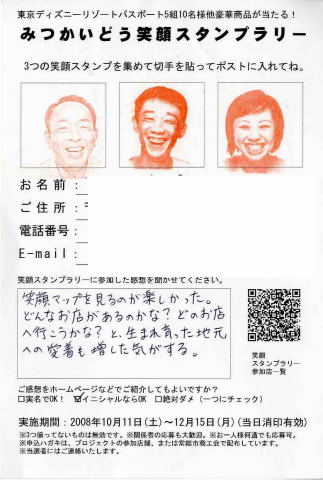 東京ディズニーリゾートパスポート5組10名様他豪華商品が当たる！
みつかいどう笑顔スタンプラリー
3つの笑顔スタンプを集めて切手を貼ってポストに入れてね。
お名前：
ご住所：
電話番号：
E-mail：
笑顔スタンプラリーに参加した感想を聞かせてください。
笑顔マップを見るのが楽しかった。
どんなお店があるのかな？どのお店
へ行こうかな？と、生まれ育った地元
への愛着も増した気がする。
笑顔
スタンプラリー
参加店一覧
ご感想をホームページなどでご紹介してもよいですか？
□実名でOK！ ☑イニシャルならOK □絶対ダメ（一つにチェック）
実施期間：2008年10月11日(土)～12月15日(月)(当日消印有効)
※3つ揃ってないものは無効です。※関係者の応募も大歓迎。※お一人様何通でも応募可。
※申込ハガキは、プロジェクトの参加店舗、または常総市商工会で配布しています。
※当選者にはご連絡いたします。